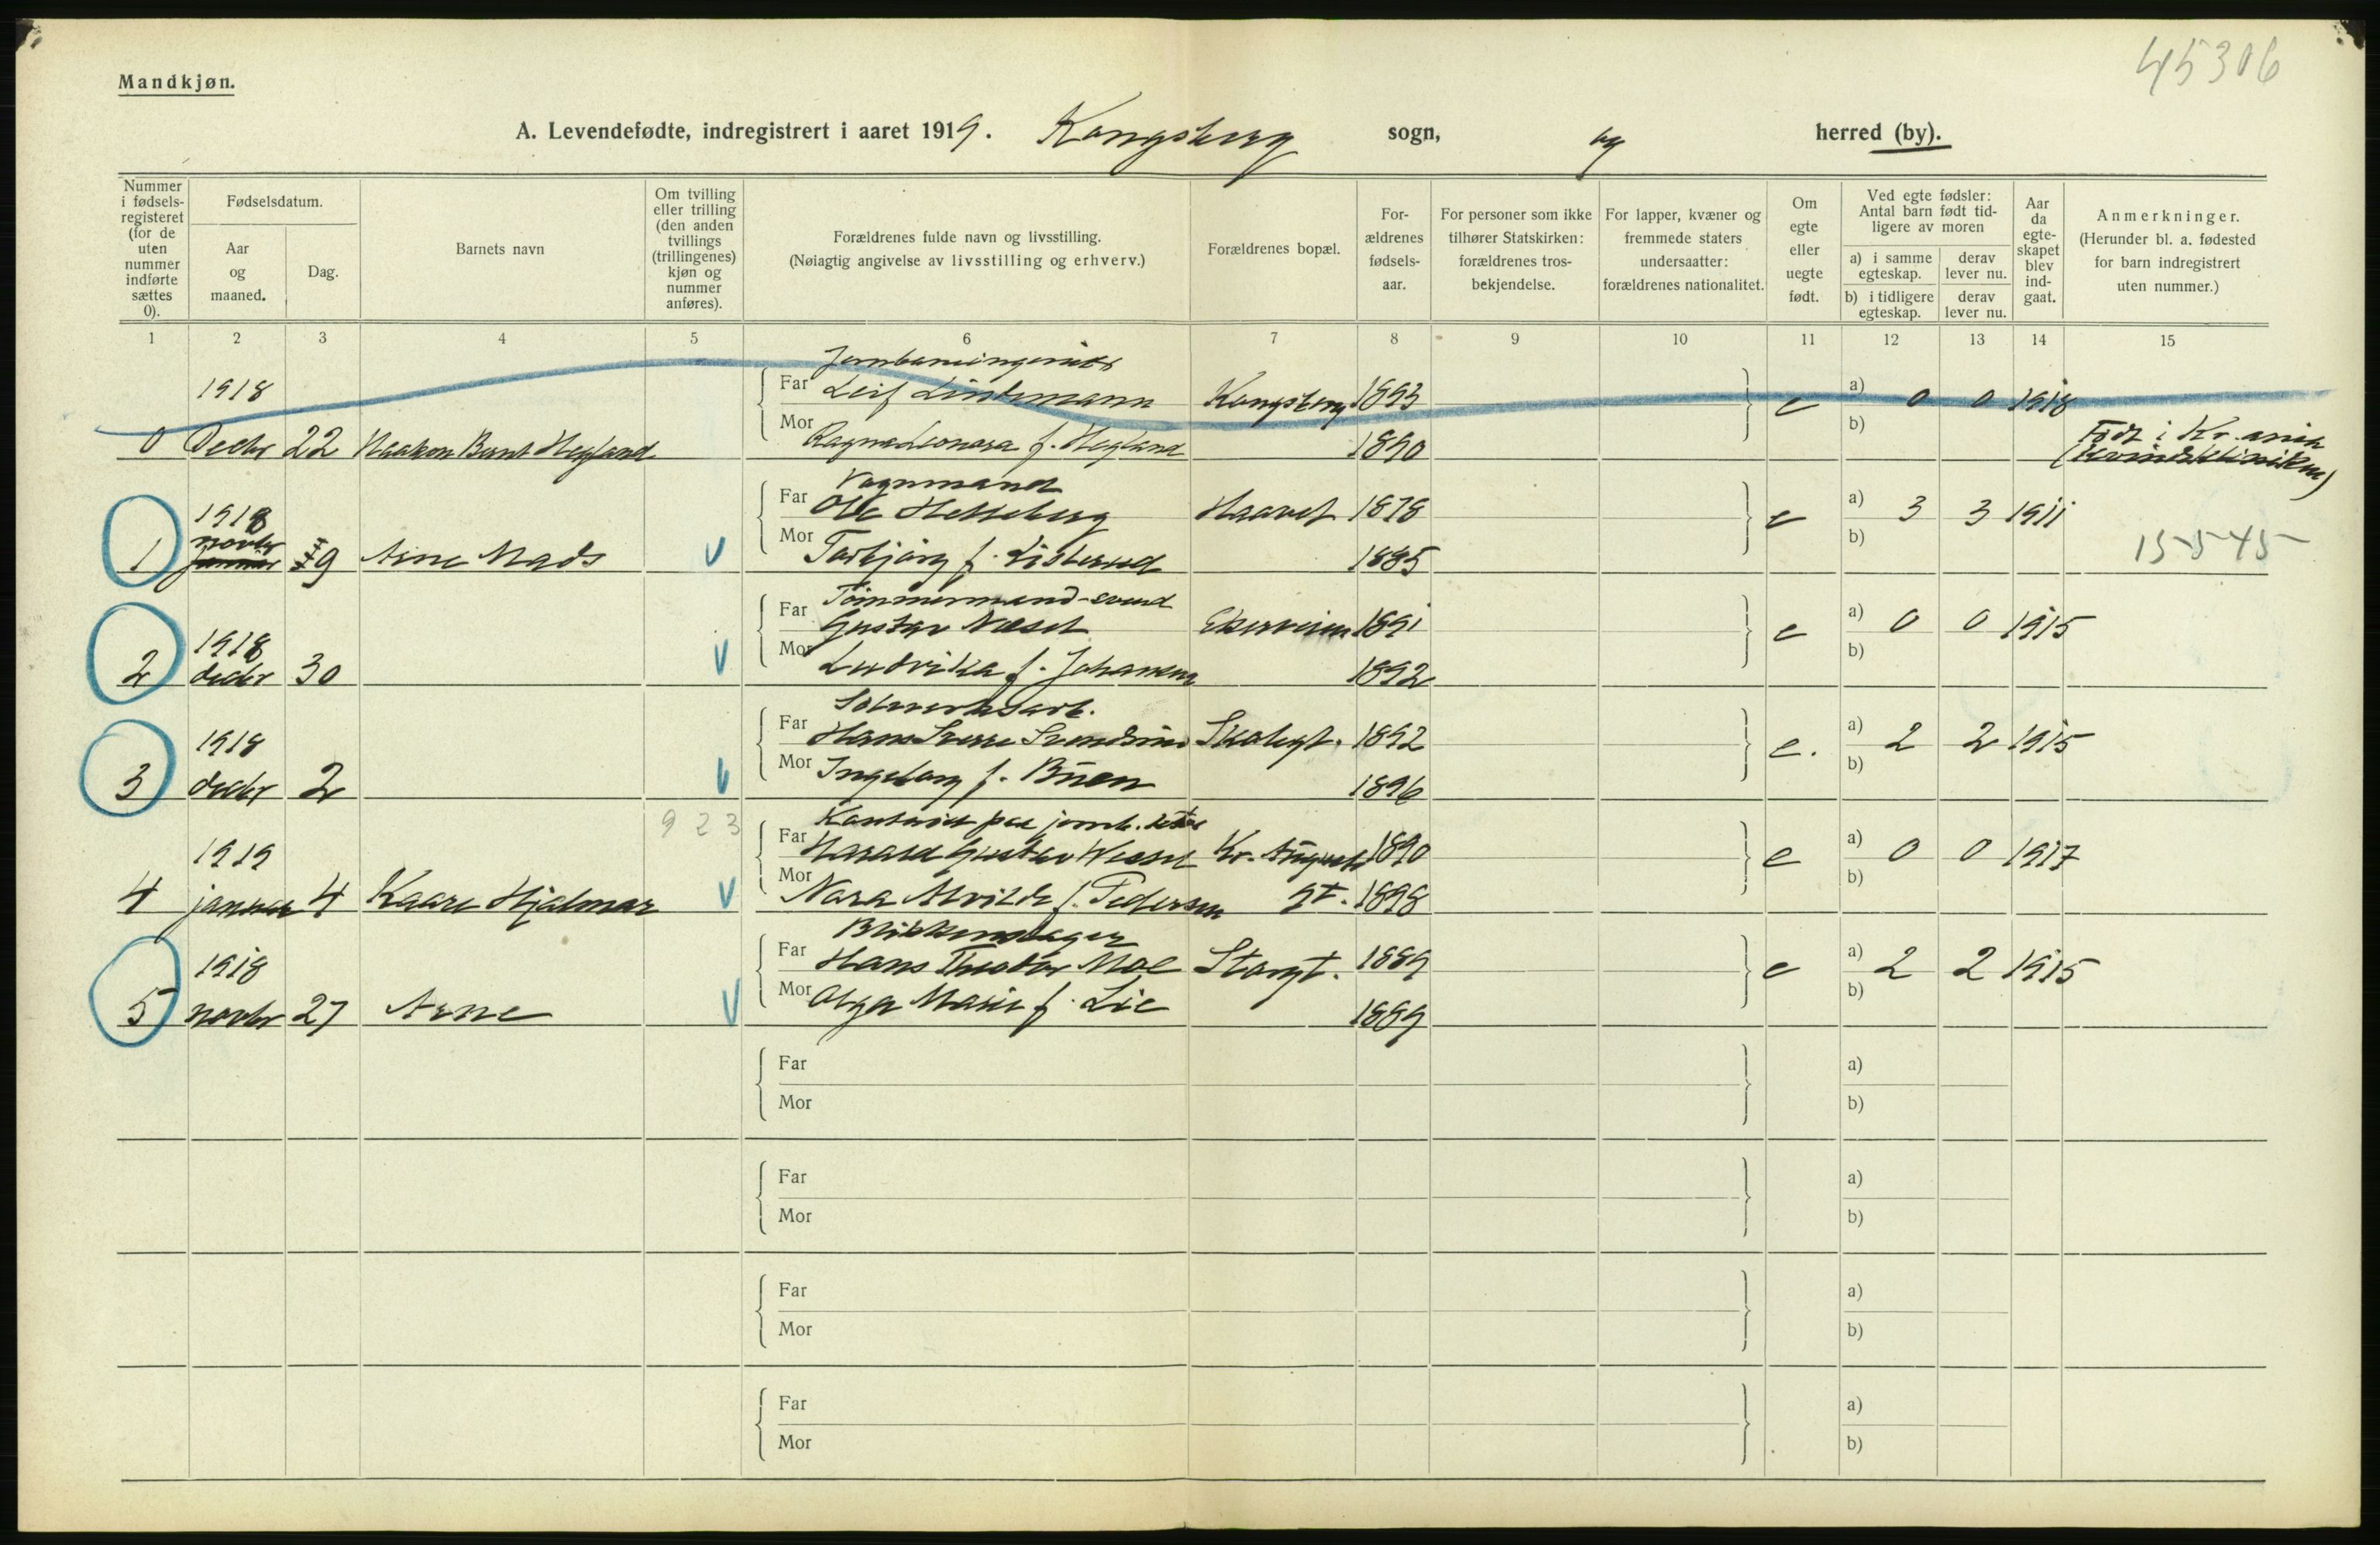 45306
Mandkjøn.
A. Levendefødte, indregistrert i aaret 1919. Kongsberg sogn, og herred (by).
Nummer i fødsels-registeret (for de uten nummer indførte sættes 0).
Fødselsdatum.
Aar og maaned.
Dag.
Barnets navn
Om tvilling eller trilling (den anden tvillings (trillingenes) kjøn og nummer anføres).
Forældrenes fulde navn og livsstilling.
(Nøiagtig angivelse av livsstilling og erhverv.)
Forældrenes bopæl.
For-ældrenes fødsels-aar.
For personer som ikke tilhører Statskirken: forældrenes tros-bekjendelse.
For lapper, kvæner og fremmede staters undersaatter: forældrenes nationalitet.
Om egte eller uegte født.
Ved egte fødsler: Antal barn født tid-ligere av moren
a) i samme egteskap.
derav lever nu.
b) i tidligere egteskap.
derav lever nu.
Aar da egte-skapet blev ind-gaat.
Anmerkninger.
(Herunder bl. a. fødested for barn indregistrert uten nummer.)
1 2 3 4 5 6 7 8 9 10 11 12 13 14 15
Jernbaneingeniør
1918 Far Leif Lindemann Kongsberg 1893 e a) 0 0 1918
0 Decbr 22 Haakon Bernt Hegland Mor Ragna Leonora f. Hegland 1890 b) Født i Kr.ania
(Kvindeklinikken)
Vognmand
1918 Far Ole Helleberg Haavet 1878 e a) 3 3 1911
novbr
1 januar 9 Arne Mads V Mor Torbjørg f. Listerud 1885 b) 15-5-45
Tømmermand-svend
1918 Far Gustav Næset Ekerveien 1891 e a) 0 0 1915
2 decbr 30 V Mor Ludvika f. Johansen 1892 b)
Sølvverksarb.
1918 Far Hans Sverre Svendsen Skolegt. 1892 e. a) 2 2 1915
3 decbr 2 V Mor Ingeborg f. Buen 1896 b)
923
Kontorist paa jernb.
1919 Far Harald Gustav Wessel Kr. Augusts 1890 e a) 0 0 1917
4 januar 4 Kaare Hjalmar V Mor Nora Alvilde f. Pedersen gt. 1898 b)
Blikkenslager
1918 Far Hans Theodor Moe Storgt. 1889 e a) 2 2 1915
5 novbr 27 Arne V Mor Olga Marie f. Lie 1889 b)
Far a)
Mor b)
Far a)
Mor b)
Far a)
Mor b)
Far a)
Mor b)